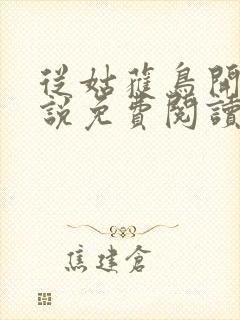 從姑蘿鳥開
說免費閱讀
焦建倉